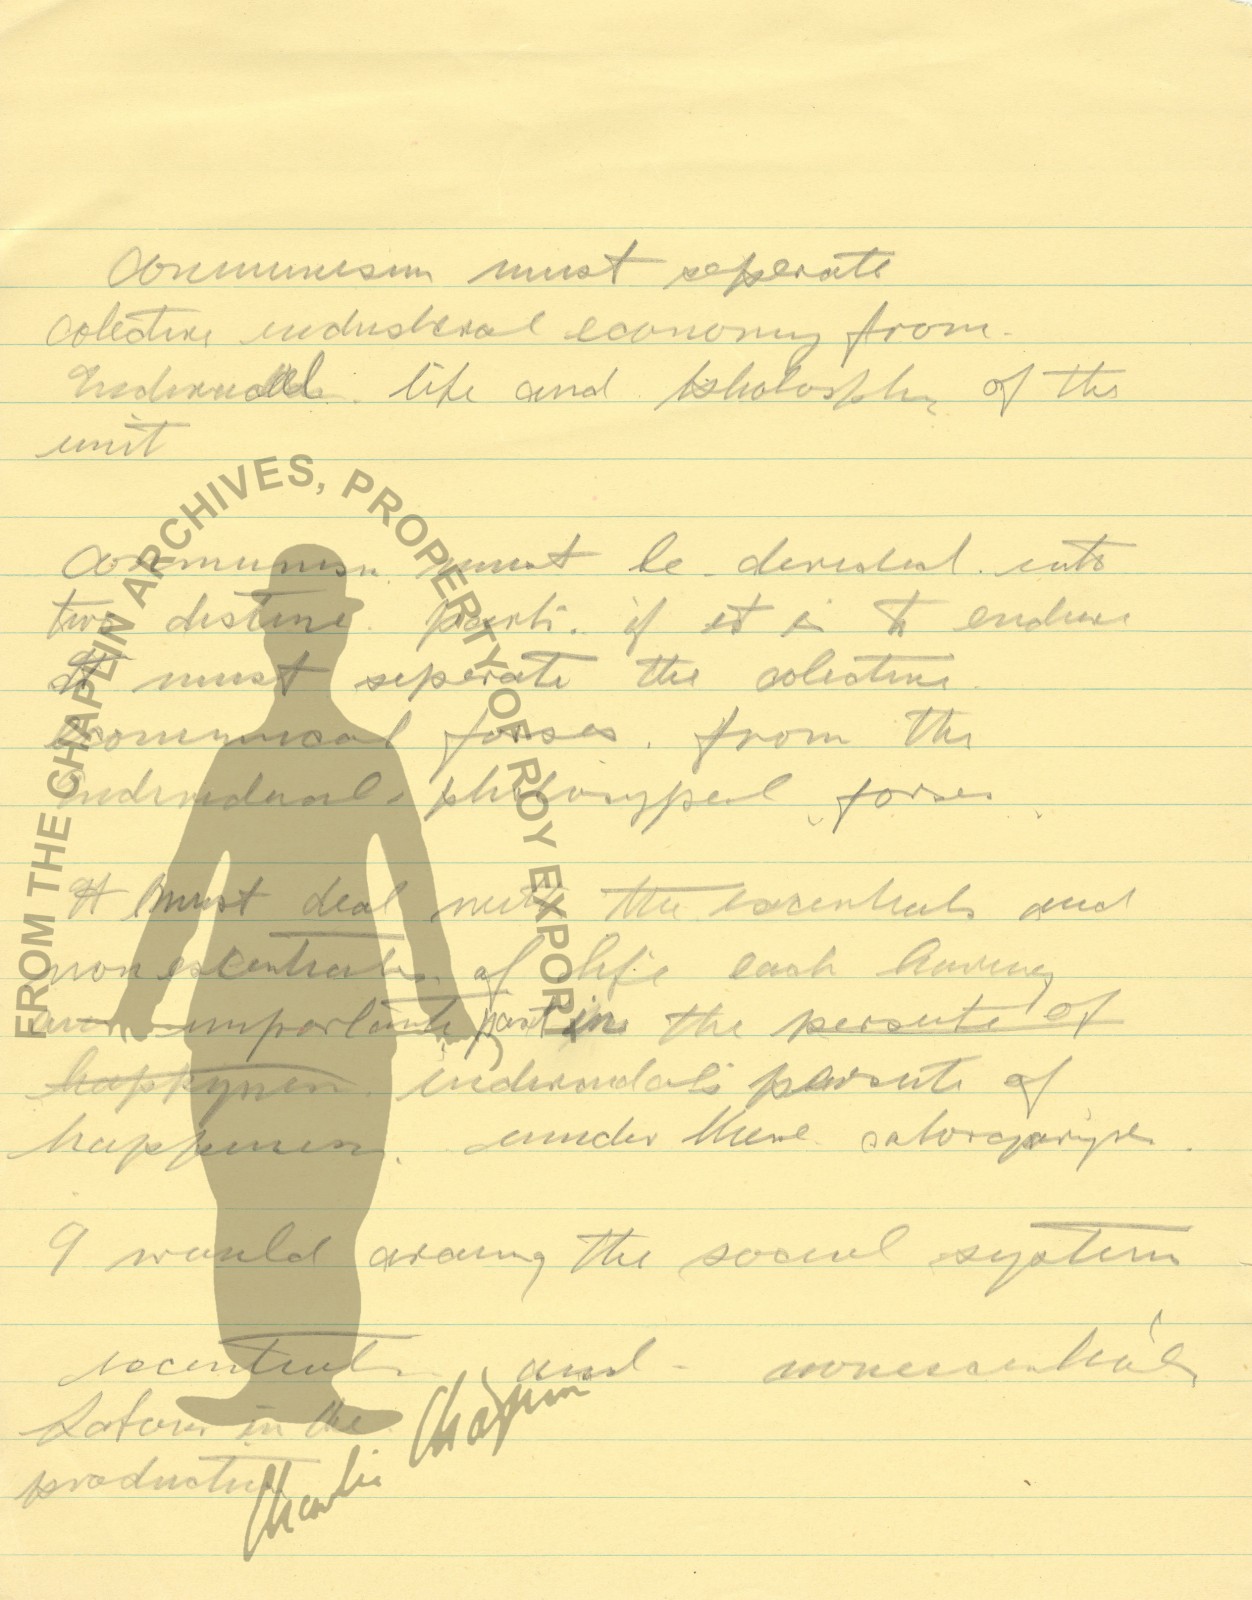 Communisum must seperate
colective industeral economy from
indervidual life and philosphy of the
unit
Communism must be devided into
two distinc parts. if it is to endure
It must seperate the colective
economical forses. from the
indervidual philosypeal forses
It must deal with the escentials and
non escentials of life each having
important part in the persute of
happyness indervidals persute of
happiness. under these
I would arang the social system
escential and nonescential
in the
production
FROM THE CHAPLIN ARCHIVES, PROPERTY OF ROY EXPORT
Charlie Chaplin